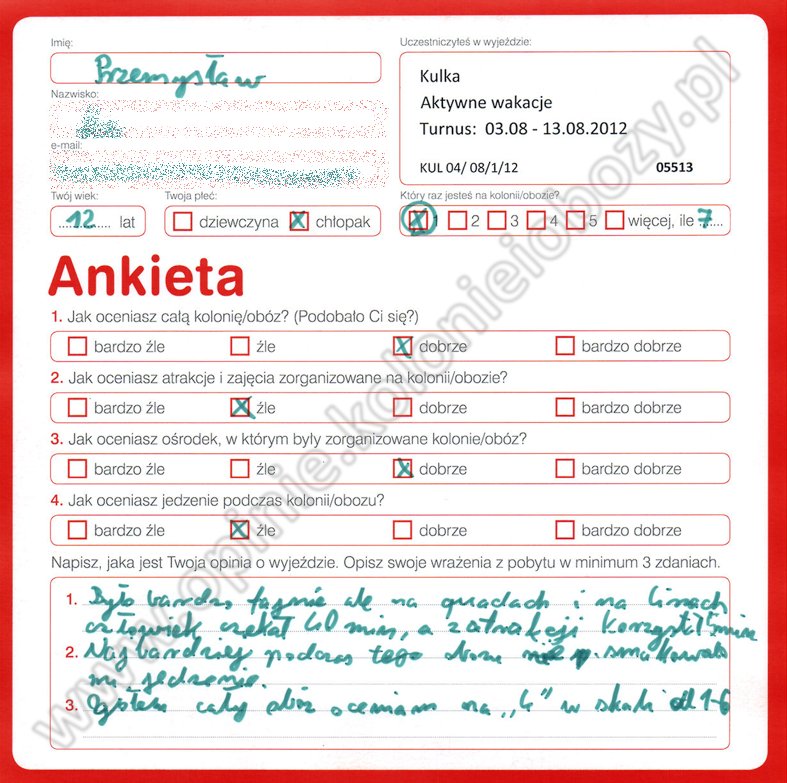 Imię:
Przemysław
Nazwisko:
e-mail:
Twój wiek:
12 lat
Twoja płeć:
dziewczyna chłopak
Uczestniczyłeś w wyjeździe:
Kulka
Aktywne wakacje
Turnus: 03.08 - 13.08.2012
KUL 04/ 08/1/12 05513
Który raz jesteś na kolonii/obozie?
1 2 3 4 5 więcej, ile 7
Ankieta
1. Jak oceniasz całą kolonię/obóz? (Podobało Ci się?)
bardzo źle źle dobrze bardzo dobrze
2. Jak oceniasz atrakcje i zajęcia zorganizowane na kolonii/obozie?
bardzo źle źle dobrze bardzo dobrze
3. Jak oceniasz ośrodek, w którym były zorganizowane kolonie/obóz?
bardzo źle źle dobrze bardzo dobrze
4. Jak oceniasz jedzenie podczas kolonii/obozu?
bardzo źle źle dobrze bardzo dobrze
Napisz, jaka jest Twoja opinia o wyjeździe. Opisz swoje wrażenia z pobytu w minimum 3 zdaniach.
1. Było bardzo fajnie ale na quadach i na linach
człowiek czekał 40 min, a z atrakcji korzystał 5 min
2. Najbardziej podczas tego obozu smakowało
mi jedzenie.
3. Ogółem cały obóz oceniam na „4" w skali od 1-6
www.opinie.kolonieiobozy.pl